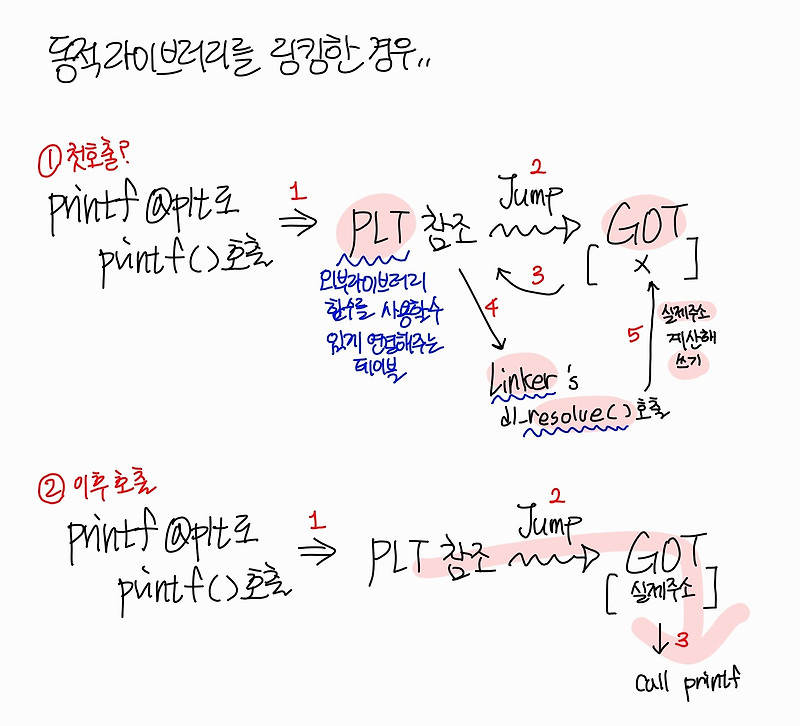 동적라이브러리를 링킹한 경우..
① 첫호출?
printf@plt로
printf()호출
1
PLT 참조
2
Jump
GOT
[ x ]
3
외부라이브러리
함수를 사용할수
있게 연결해주는
테이블
4
Linker's
dl_resolve()호출
5
실제주소
계산해
쓰기
② 이후호출
printf@plt로
printf()호출
1
PLT 참조
2
Jump
GOT
[실제주소]
3
call printf